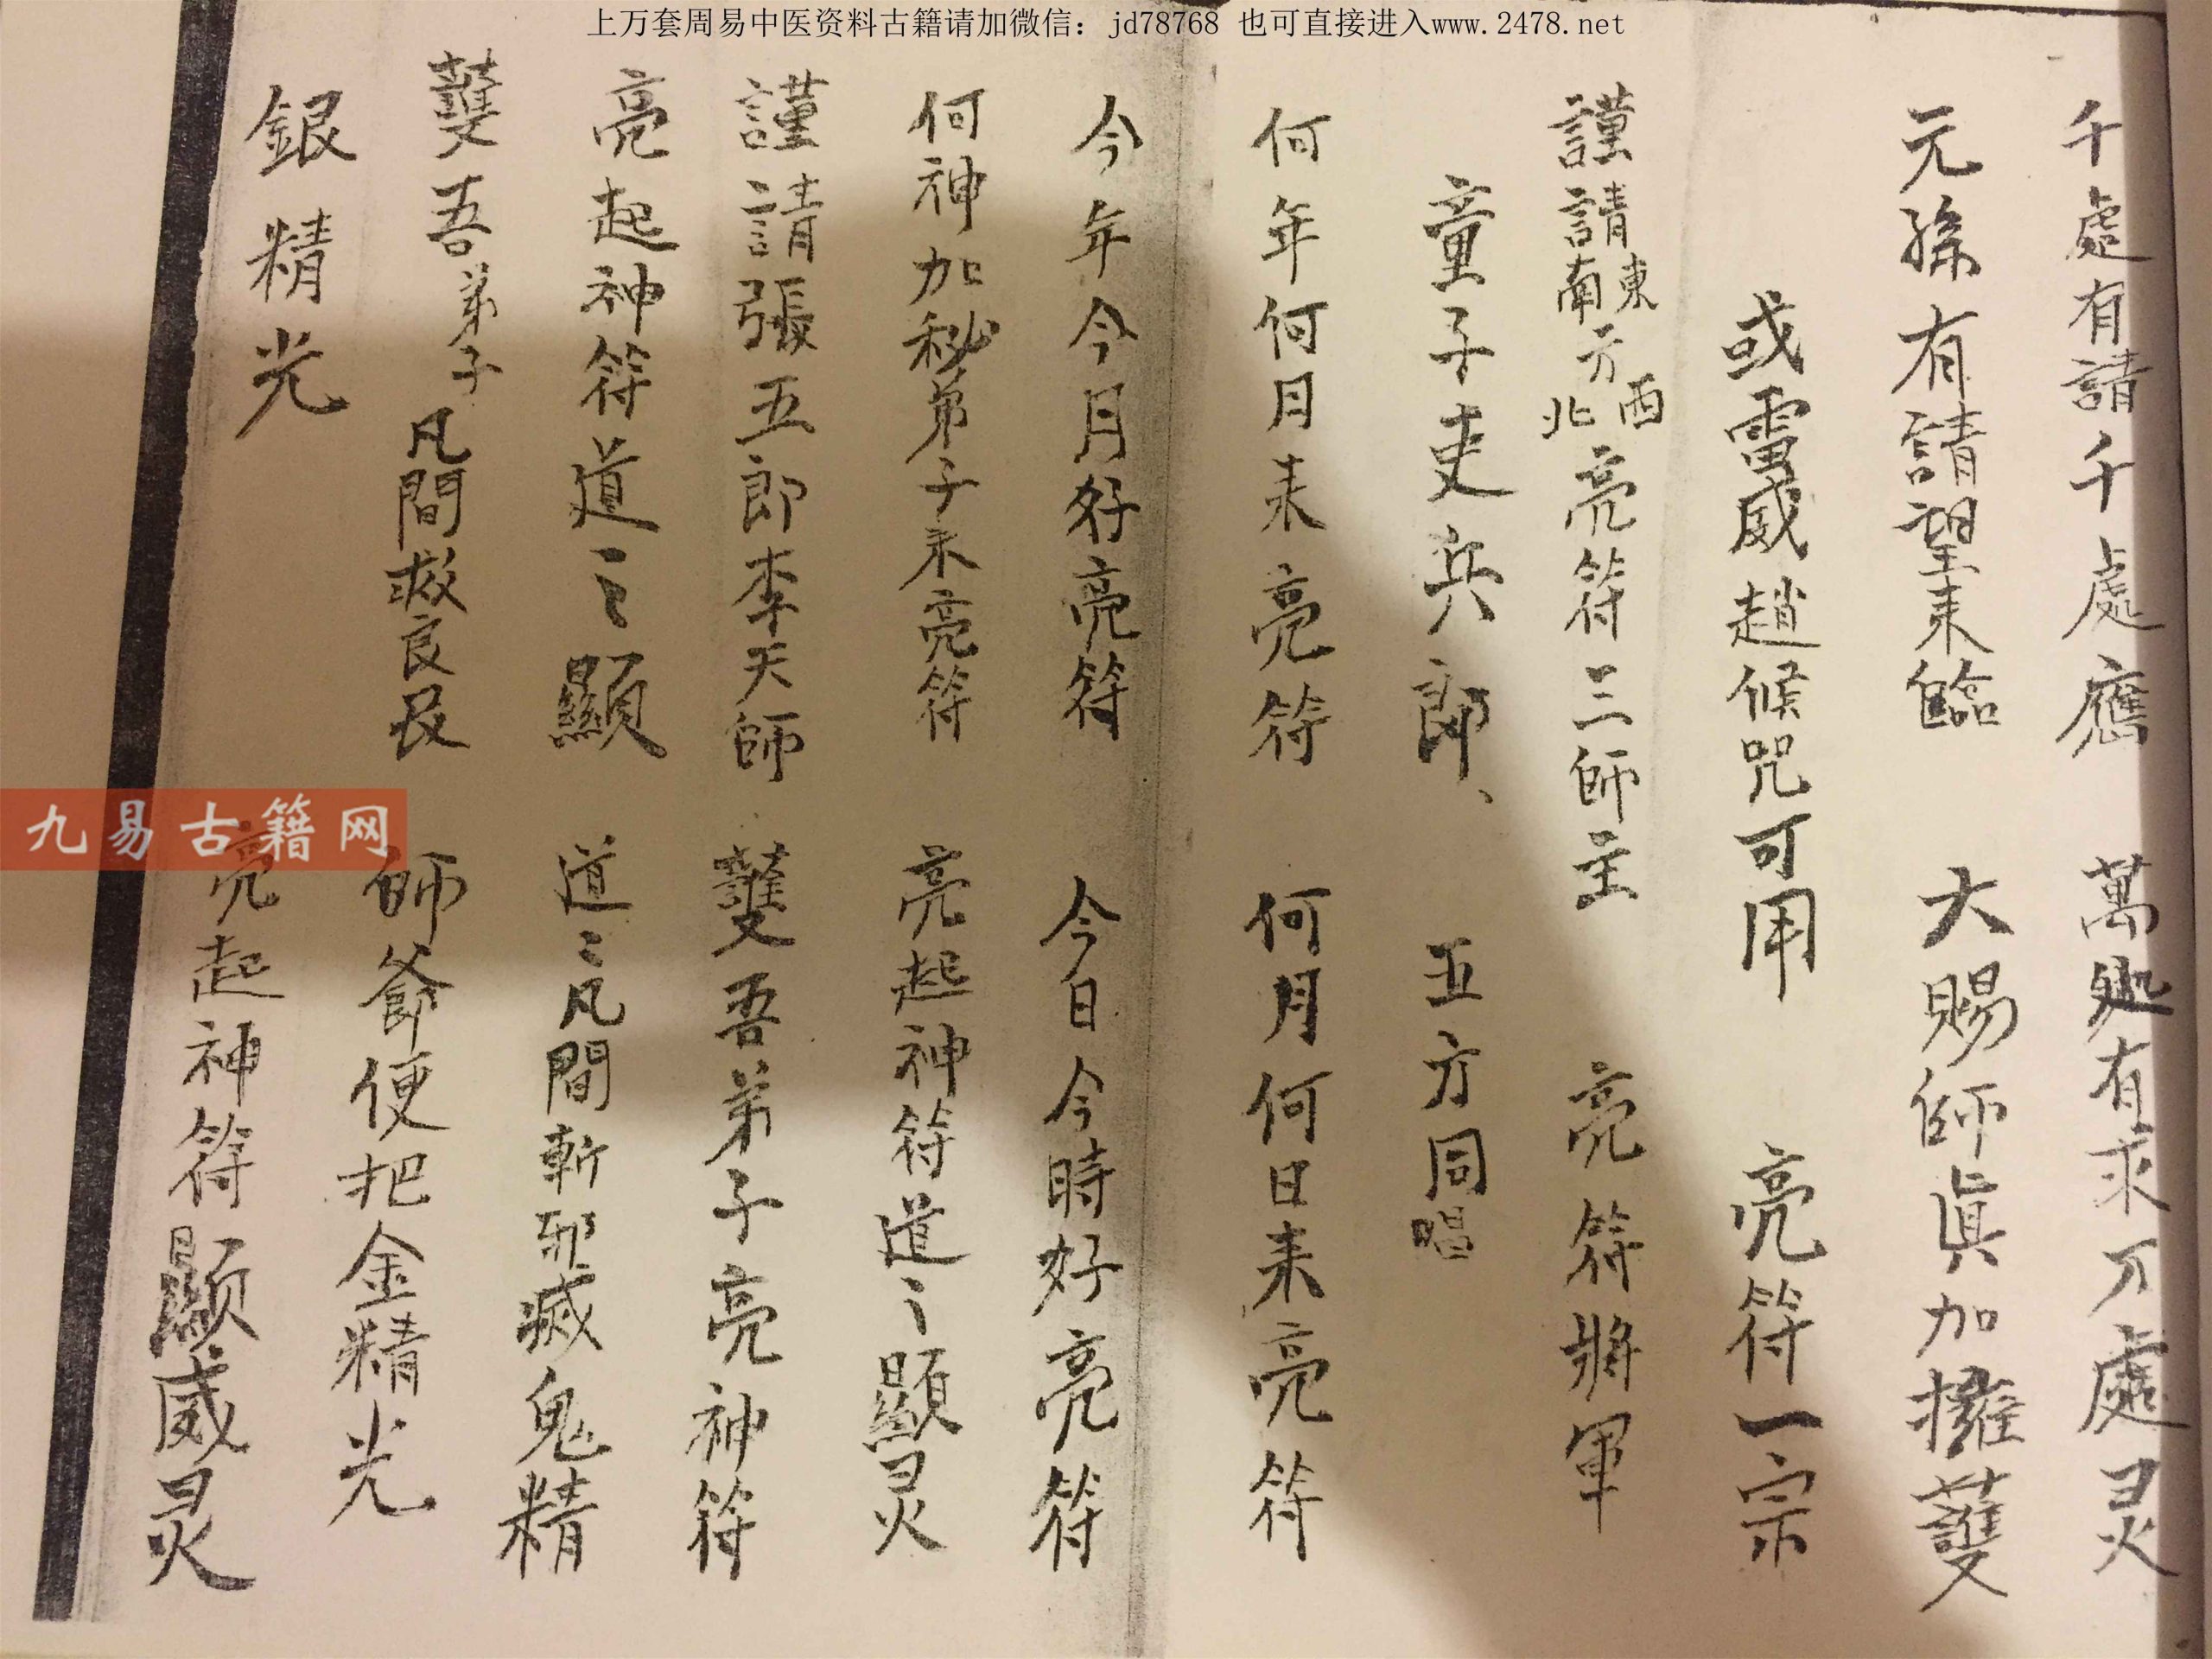 上万套周易中医资料古籍请加微信：jd78768 也可直接进入www.2478.net
千處有請千處應 萬處有求万處灵
元孫有請望来臨 大賜師眞加擁護
或雷威趙候咒可用 亮符一宗
謹請東南方西北亮符三師主 亮符將軍
童子吏兵郎、 五方同唱
何年何月来亮符 何月何日来亮符
今年今月好亮符 今日今時好亮符
何神加秘弟子来亮符 亮起神符道〻顯灵
謹請張五郎李天師 護吾弟子亮神符
亮起神符道〻顯 道〻凡間斬邪滅鬼精
護吾弟子凡間救良民 師爺便把金精光
銀精光 亮起神符顯威灵
九易古籍网